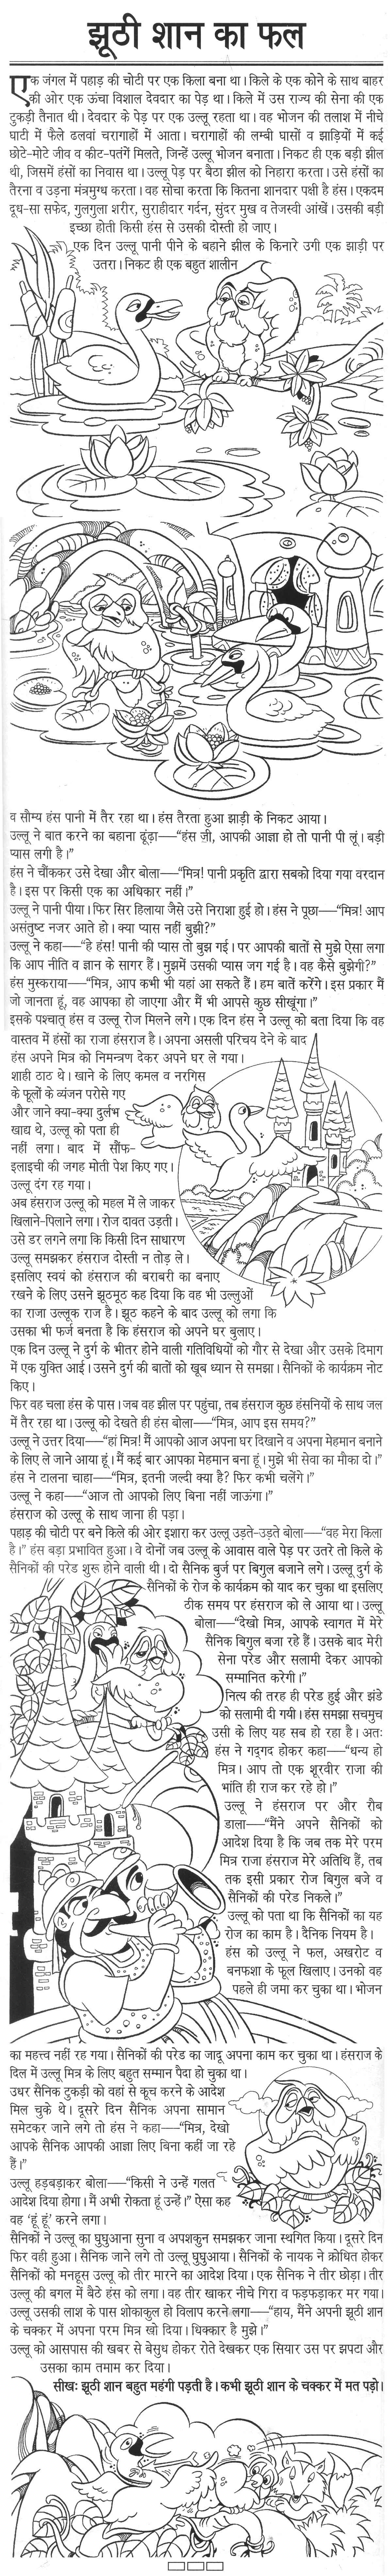 झूठी शान का फल
एक जंगल में पहाड़ की चोटी पर एक किला बना था। किले के एक कोने के साथ बाहर
की ओर एक ऊंचा विशाल देवदार का पेड़ था। किले में उस राज्य की सेना की एक
टुकड़ी तैनात थी। देवदार के पेड़ पर एक उल्लू रहता था। वह भोजन की तलाश में नीचे
घाटी में फैले ढलवां चरागाहों में आता। चरागाहों की लम्बी घासों व झाड़ियों में कई
छोटे-मोटे जीव व कीट-पतंगे मिलते, जिन्हें उल्लू भोजन बनाता। निकट ही एक बड़ी झील
थी, जिसमें हंसों का निवास था। उल्लू पेड़ पर बैठा झील को निहारा करता। उसे हंसों का
तैरना व उड़ना मंत्रमुग्ध करता। वह सोचा करता कि कितना शानदार पक्षी है हंस। एकदम
दूध-सा सफेद, गुलगुला शरीर, सुराहीदार गर्दन, सुंदर मुख व तेजस्वी आंखें। उसकी बड़ी
इच्छा होती किसी हंस से उसकी दोस्ती हो जाए।
एक दिन उल्लू पानी पीने के बहाने झील के किनारे उगी एक झाड़ी पर
उतरा। निकट ही एक बहुत शालीन
व सौम्य हंस पानी में तैर रहा था। हंस तैरता हुआ झाड़ी के निकट आया।
उल्लू ने बात करने का बहाना ढूंढ़ा—“हंस जी, आपकी आज्ञा हो तो पानी पी लूं। बड़ी
प्यास लगी है।”
हंस ने चौंककर उसे देखा और बोला—“मित्र! पानी प्रकृति द्वारा सबको दिया गया वरदान
है। इस पर किसी एक का अधिकार नहीं।”
उल्लू ने पानी पीया। फिर सिर हिलाया जैसे उसे निराशा हुई हो। हंस ने पूछा—“मित्र! आप
असंतुष्ट नजर आते हो। क्या प्यास नहीं बुझी?”
उल्लू ने कहा—“हे हंस! पानी की प्यास तो बुझ गई। पर आपकी बातों से मुझे ऐसा लगा
कि आप नीति व ज्ञान के सागर हैं। मुझमें उसकी प्यास जग गई है। वह कैसे बुझेगी?”
हंस मुस्कराया—“मित्र, आप कभी भी यहां आ सकते हैं। हम बातें करेंगे। इस प्रकार मैं
जो जानता हूं, वह आपका हो जाएगा और मैं भी आपसे कुछ सीखूंगा।”
इसके पश्चात् हंस व उल्लू रोज मिलने लगे। एक दिन हंस ने उल्लू को बता दिया कि वह
वास्तव में हंसों का राजा हंसराज है। अपना असली परिचय देने के बाद
हंस अपने मित्र को निमन्त्रण देकर अपने घर ले गया।
शाही ठाठ थे। खाने के लिए कमल व नरगिस
के फूलों के व्यंजन परोसे गए
और जाने क्या-क्या दुर्लभ
खाद्य थे, उल्लू को पता ही
नहीं लगा। बाद में सौंफ-
इलाइची की जगह मोती पेश किए गए।
उल्लू दंग रह गया।
अब हंसराज उल्लू को महल में ले जाकर
खिलाने-पिलाने लगा। रोज दावत उड़ती।
उसे डर लगने लगा कि किसी दिन साधारण
उल्लू समझकर हंसराज दोस्ती न तोड़ ले।
इसलिए स्वयं को हंसराज की बराबरी का बनाए
रखने के लिए उसने झूठमूठ कह दिया कि वह भी उल्लुओं
का राजा उल्लूक राज है। झूठ कहने के बाद उल्लू को लगा कि
उसका भी फर्ज बनता है कि हंसराज को अपने घर बुलाए।
एक दिन उल्लू ने दुर्ग के भीतर होने वाली गतिविधियों को गौर से देखा और उसके दिमाग
में एक युक्ति आई। उसने दुर्ग की बातों को खूब ध्यान से समझा। सैनिकों के कार्यक्रम नोट
किए।
फिर वह चला हंस के पास। जब वह झील पर पहुंचा, तब हंसराज कुछ हंसनियों के साथ जल
में तैर रहा था। उल्लू को देखते ही हंस बोला—“मित्र, आप इस समय?”
उल्लू ने उत्तर दिया—“हां मित्र! मैं आपको आज अपना घर दिखाने व अपना मेहमान बनाने
के लिए ले जाने आया हूं। मैं कई बार आपका मेहमान बना हूं। मुझे भी सेवा का मौका दो।”
हंस ने टालना चाहा—“मित्र, इतनी जल्दी क्या है? फिर कभी चलेंगे।”
उल्लू ने कहा—“आज तो आपको लिए बिना नहीं जाऊंगा।”
हंसराज को उल्लू के साथ जाना ही पड़ा।
पहाड़ की चोटी पर बने किले की ओर इशारा कर उल्लू उड़ते-उड़ते बोला—“वह मेरा किला
है।” हंस बड़ा प्रभावित हुआ। वे दोनों जब उल्लू के आवास वाले पेड़ पर उतरे तो किले के
सैनिकों की परेड शुरू होने वाली थी। दो सैनिक बुर्ज पर बिगुल बजाने लगे। उल्लू दुर्ग के
सैनिकों के रोज के कार्यक्रम को याद कर चुका था इसलिए
ठीक समय पर हंसराज को ले आया था। उल्लू
बोला—“देखो मित्र, आपके स्वागत में मेरे
सैनिक बिगुल बजा रहे हैं। उसके बाद मेरी
सेना परेड और सलामी देकर आपको
सम्मानित करेगी।”
नित्य की तरह ही परेड हुई और झंडे
को सलामी दी गयी। हंस समझा सचमुच
उसी के लिए यह सब हो रहा है। अतः
हंस ने गद्‌गद होकर कहा—“धन्य हो
मित्र। आप तो एक शूरवीर राजा की
भांति ही राज कर रहे हो।”
उल्लू ने हंसराज पर और रौब
डाला—“मैंने अपने सैनिकों को
आदेश दिया है कि जब तक मेरे परम
मित्र राजा हंसराज मेरे अतिथि हैं, तब
तक इसी प्रकार रोज बिगुल बजे व
सैनिकों की परेड निकले।”
उल्लू को पता था कि सैनिकों का यह
रोज का काम है। दैनिक नियम है।
हंस को उल्लू ने फल, अखरोट व
बनफशा के फूल खिलाए। उनको वह
पहले ही जमा कर चुका था। भोजन
का महत्त्व नहीं रह गया। सैनिकों की परेड का जादू अपना काम कर चुका था। हंसराज के
दिल में उल्लू मित्र के लिए बहुत सम्मान पैदा हो चुका था।
उधर सैनिक टुकड़ी को वहां से कूच करने के आदेश
मिल चुके थे। दूसरे दिन सैनिक अपना सामान
समेटकर जाने लगे तो हंस ने कहा—“मित्र, देखो
आपके सैनिक आपकी आज्ञा लिए बिना कहीं जा रहे
हैं।”
उल्लू हड़बड़ाकर बोला—“किसी ने उन्हें गलत
आदेश दिया होगा। मैं अभी रोकता हूं उन्हें।” ऐसा कह
वह ‘हूं हूं’ करने लगा।
सैनिकों ने उल्लू का घुघुआना सुना व अपशकुन समझकर जाना स्थगित किया। दूसरे दिन
फिर वही हुआ। सैनिक जाने लगे तो उल्लू घुघुआया। सैनिकों के नायक ने क्रोधित होकर
सैनिकों को मनहूस उल्लू को तीर मारने का आदेश दिया। एक सैनिक ने तीर छोड़ा। तीर
उल्लू की बगल में बैठे हंस को लगा। वह तीर खाकर नीचे गिरा व फड़फड़ाकर मर गया।
उल्लू उसकी लाश के पास शोकाकुल हो विलाप करने लगा—“हाय, मैंने अपनी झूठी शान
के चक्कर में अपना परम मित्र खो दिया। धिक्कार है मुझे।”
उल्लू को आसपास की खबर से बेसुध होकर रोते देखकर एक सियार उस पर झपटा और
उसका काम तमाम कर दिया।
सीखः झूठी शान बहुत महंगी पड़ती है। कभी झूठी शान के चक्कर में मत पड़ो।